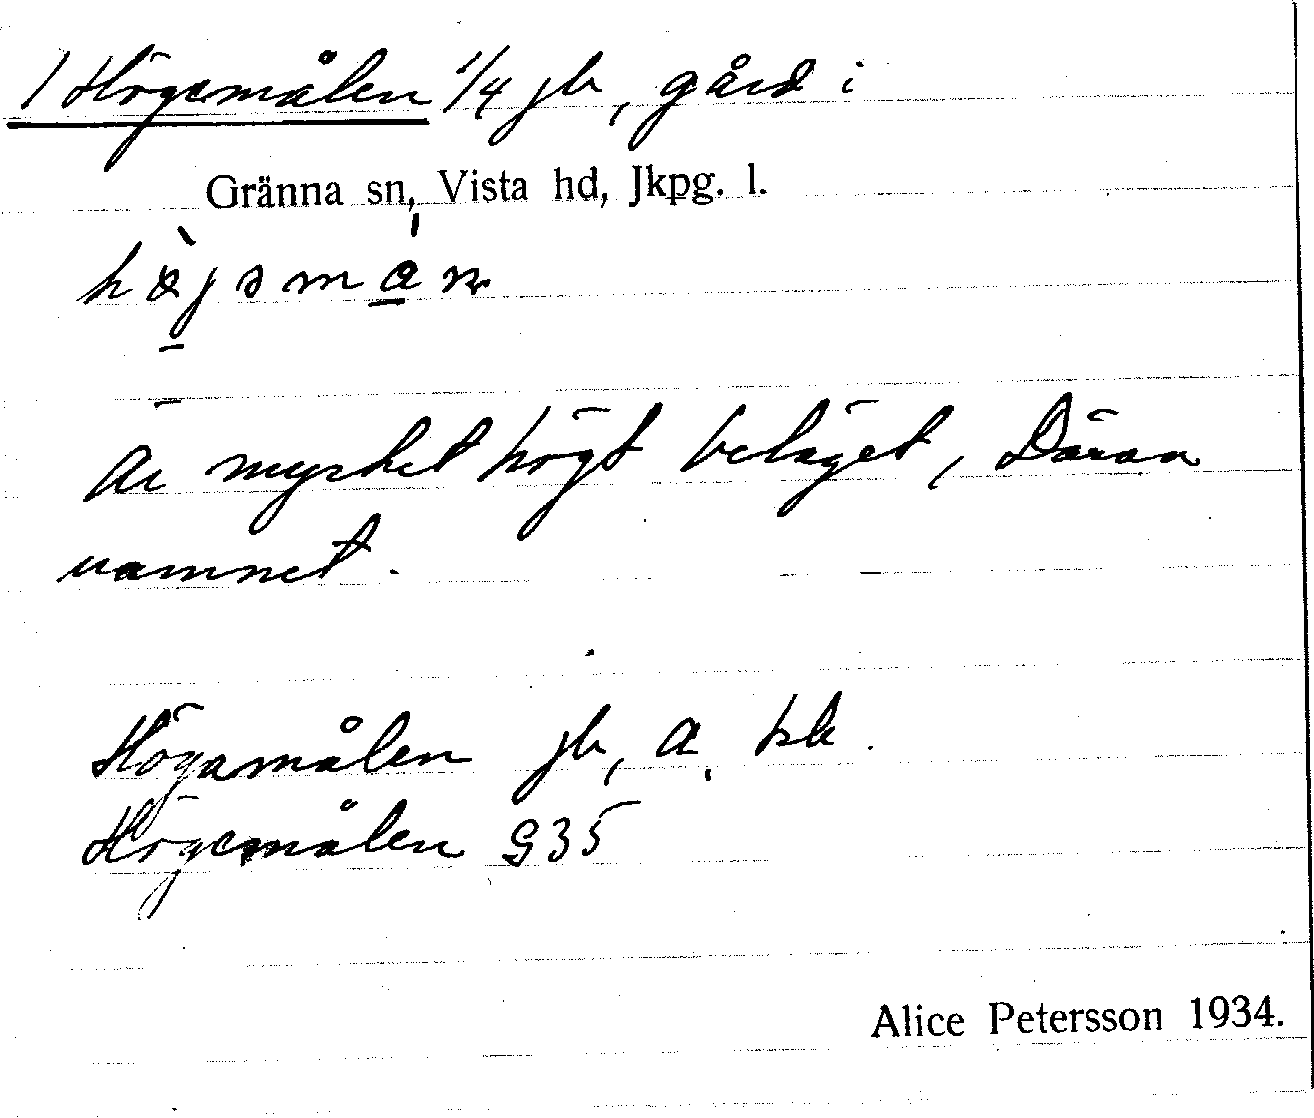 1 Högemålen 1/4 jb, gård i
Gränna sn, Vista hd, Jkpg. l.
Är mycket högt beläget, Därav
namnet.
Högamålen jb, a, kk.
Högemålen G35
Alice Petersson 1934.